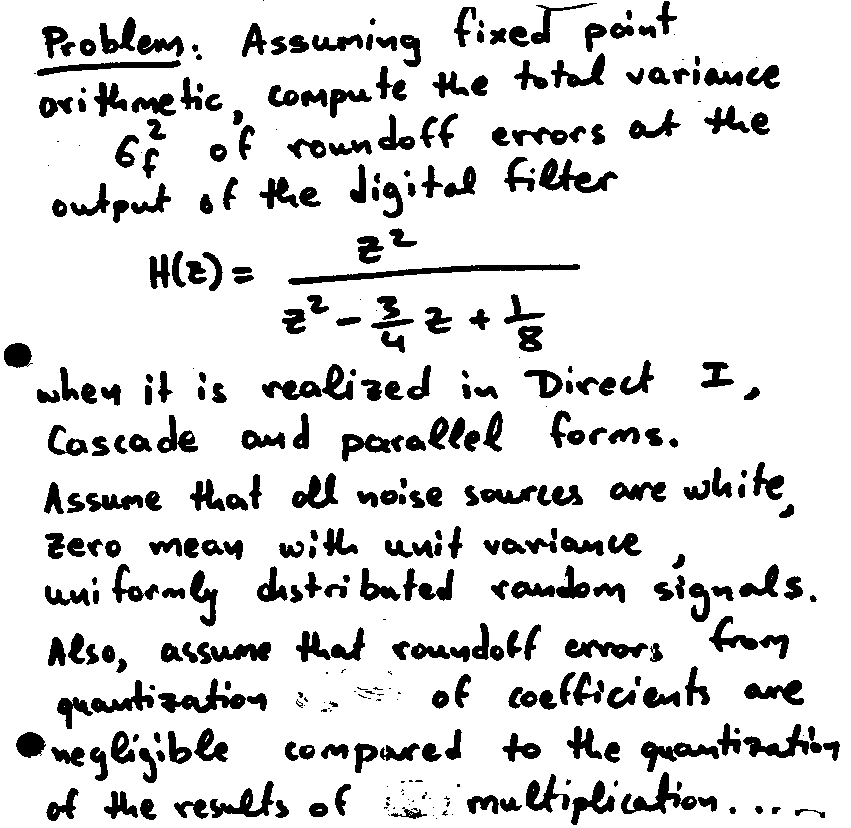 Problem: Assuming fixed point
arithmetic, compute the total variance
σ_f^2 of roundoff errors at the
output of the digital filter
H(z) = z^2 / (z^2 - 3/4 z + 1/8)
when it is realized in Direct I,
Cascade and parallel forms.
Assume that all noise sources are white,
zero mean with unit variance,
uniformly distributed random signals.
Also, assume that roundoff errors from
quantization of coefficients are
negligible compared to the quantization
of the results of multiplication....